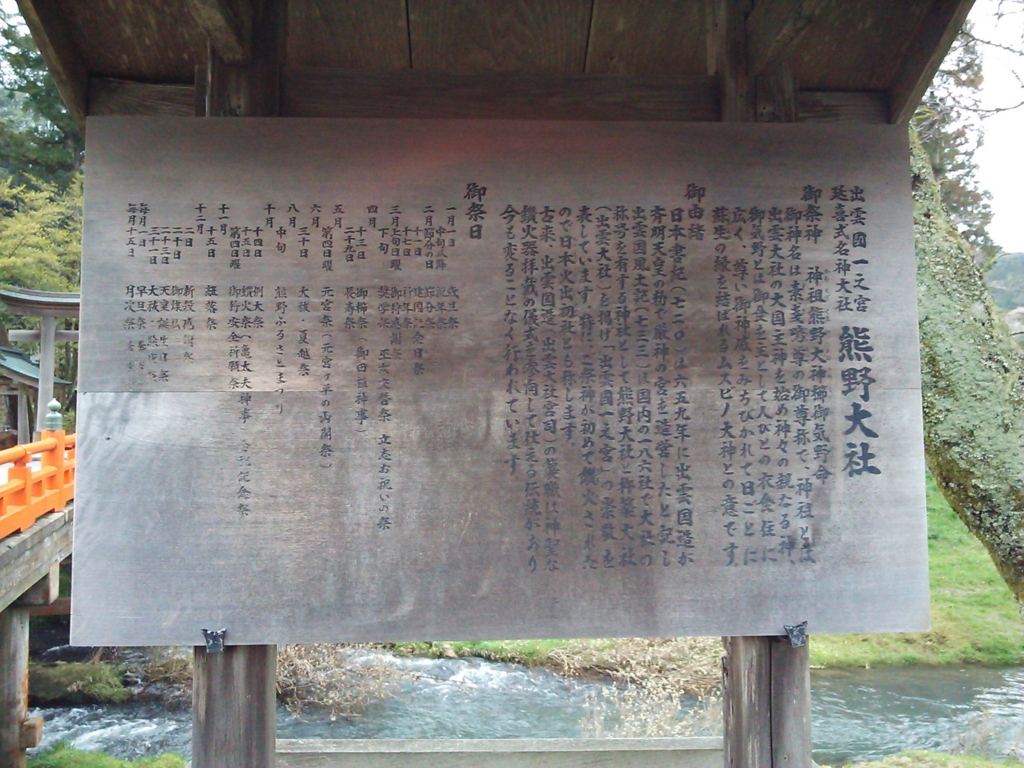 出雲國一之宮
延喜式名神大社 熊野大社
御祭神 神祖熊野大神櫛御気野命
御神名は素戔嗚尊の御尊称で、神祖とは
出雲大社の大国主神を始め神々の親なる神、
御気野とは御食を主として人びとの衣食住に
広く、尊い御神威をみちびかれて日ごとに
蘇生の縁を結ばれるムスビノ大神との意です。
御由緒
日本書紀(七二〇)は六五九年に出雲国造が
斉明天皇の勅で厳神の宮を造営したと記し
出雲国風土記(七三三)は国内の一八六社で大社の
称号を有する神社として熊野大社と杵築大社
(出雲大社)を掲げ「出雲国一之宮」の崇敬を
表しています。特にご祭神が初めて鑚火された
ので日本火出初社とも称します。
古来、出雲国造(出雲大社宮司)の襲職は神聖な
鑚火器拝戴の儀式を参向して仕える伝統があり
今も変ることなく行われています。
御祭日
一月一日 歳旦祭
中旬以降
二月節分の日 節分祭
十一日 建国記念日祭
三月上旬日曜 御狩感謝祭
下旬 奨学祭 立志お祝いの祭
四月十三日 御櫛祭(御田植神事)
二十九日
五月第四日曜 元宮祭
六月三十日 大祓・夏越祭
八月中旬 熊野ふるさとまつり
十月十四日 例大祭
十五日 鑚火祭(亀太夫神事)
十一月第四日曜 御狩安全祈願祭
十五日
十二月二日 新穀感謝祭
二十日 御煤払
二十三日 天皇誕生日祭
三十一日 大祓・除夜祭
毎月一日
毎月十五日 月次祭